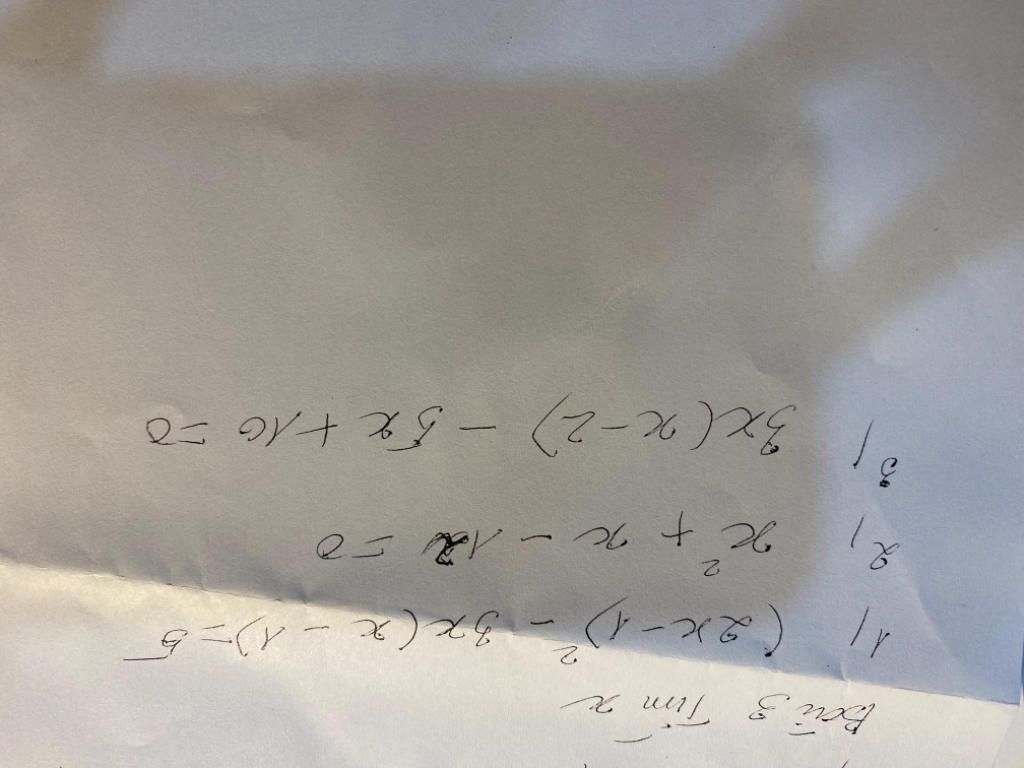 Bài 3 Tìm x
1, (2x-1)² - 3x(x-1)=5
2, x² + x - 12 =0
3, 3x(x-2) - 5x+10=0